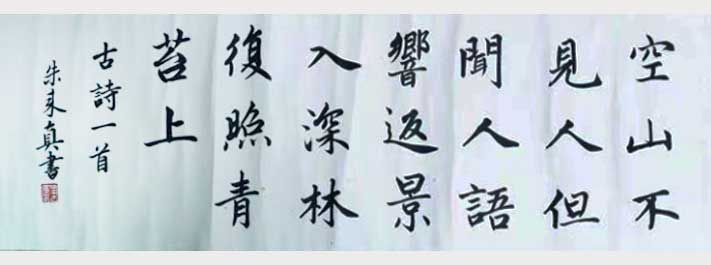 空山不
見人但
聞人語
響返景
入深林
復照青
苔上
古詩一首
朱來真書